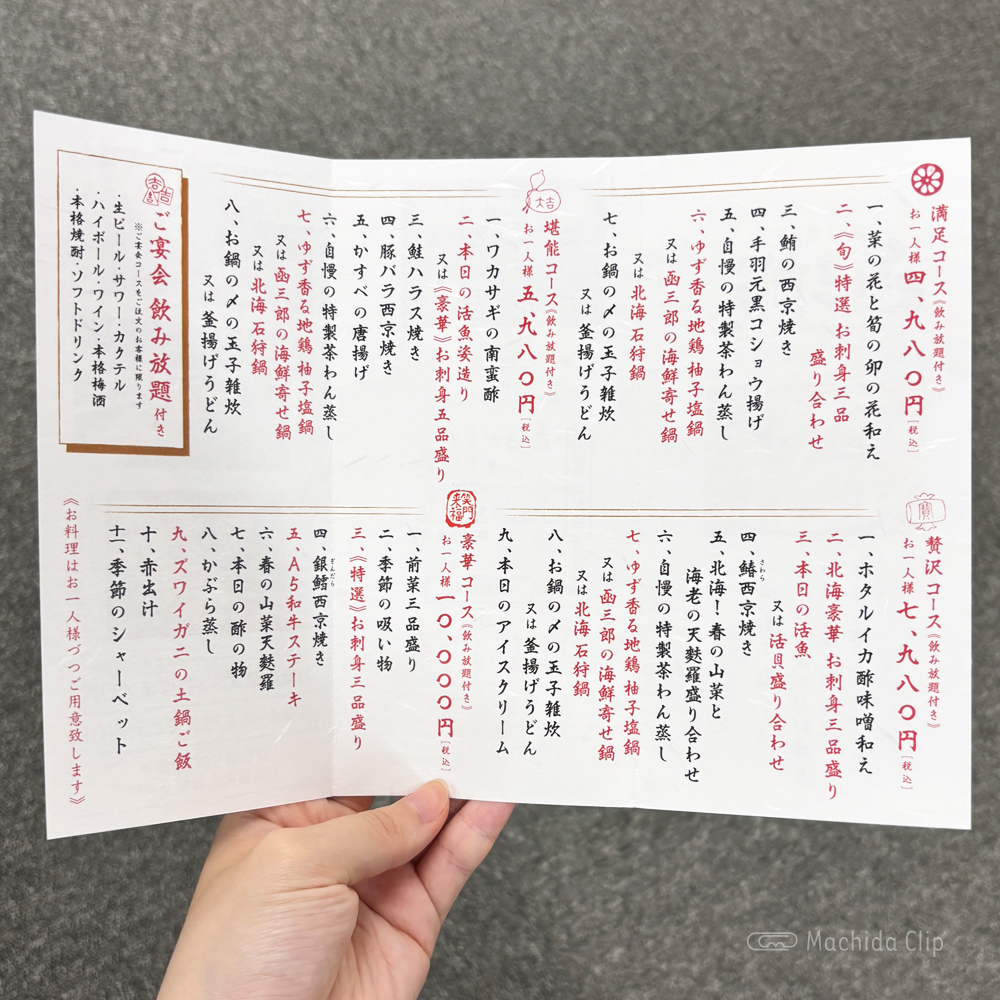 満足コース《飲み放題付き》
お一人様 四、九八〇円[税込]
一、菜の花と筍の卯の花和え
二、《旬》特選 お刺身三品
盛り合わせ
三、鮪の西京焼き
四、手羽元黒コショウ揚げ
五、自慢の特製茶わん蒸し
六、ゆず香る地鶏 柚子塩鍋
又は 函三郎の海鮮寄せ鍋
又は 北海 石狩鍋
七、お鍋の〆の玉子雑炊
又は 釜揚げうどん
大吉
堪能コース《飲み放題付き》
お一人様 五、九八〇円[税込]
一、ワカサギの南蛮酢
二、本日の活魚姿造り
又は《豪華》お刺身五品盛り
三、鮭ハラス焼き
四、豚バラ西京焼き
五、かすべの唐揚げ
六、自慢の特製茶わん蒸し
七、ゆず香る地鶏 柚子塩鍋
又は 函三郎の海鮮寄せ鍋
又は 北海 石狩鍋
八、お鍋の〆の玉子雑炊
又は 釜揚げうどん
ご宴会 飲み放題付き
※ご宴会コースをご注文のお客様に限ります
・生ビール・サワー・カクテル
・ハイボール・ワイン・本格梅酒
・本格焼酎・ソフトドリンク
寶
贅沢コース《飲み放題付き》
お一人様 七、九八〇円[税込]
一、ホタルイカ酢味噌和え
二、北海豪華 お刺身三品盛り
三、本日の活魚
又は 活貝盛り合わせ
四、鰆西京焼き
さわら
五、北海！春の山菜と
海老の天麩羅盛り合わせ
六、自慢の特製茶わん蒸し
七、ゆず香る地鶏 柚子塩鍋
又は函三郎の海鮮寄せ鍋
又は 北海 石狩鍋
八、お鍋の〆の玉子雑炊
又は 釜揚げうどん
九、本日のアイスクリーム
笑門来福
豪華コース《飲み放題付き》
お一人様 一〇、〇〇〇円[税込]
一、前菜三品盛り
二、季節の吸い物
三、《特選》お刺身三品盛り
四、銀鱈西京焼き
ぎんだら
五、A5和牛ステーキ
六、春の山菜天麩羅
七、本日の酢の物
八、かぶら蒸し
九、ズワイガニの土鍋ご飯
十、赤出汁
十一、季節のシャーベット
《お料理はお一人様づつご用意致します》
Machida Clip